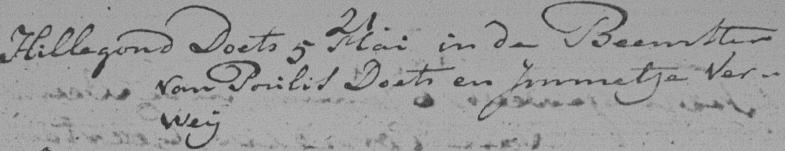 21
Hillegond Doets 5 Mai in de Beemster
van Poulis Doets en Jmmetje Ver-
weij